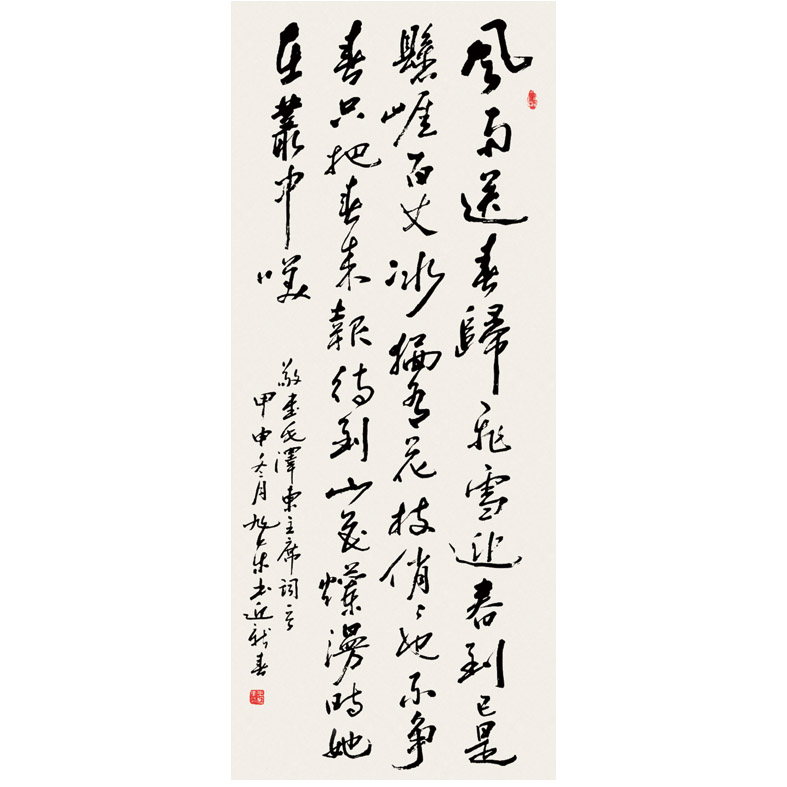 風雨送春歸飛雪迎春到已是
懸崖百丈冰猶有花枝俏〻也不争
春只把春来報待到山花爛漫時她
在叢中咲
敬書毛澤東主席詞
甲申冬月